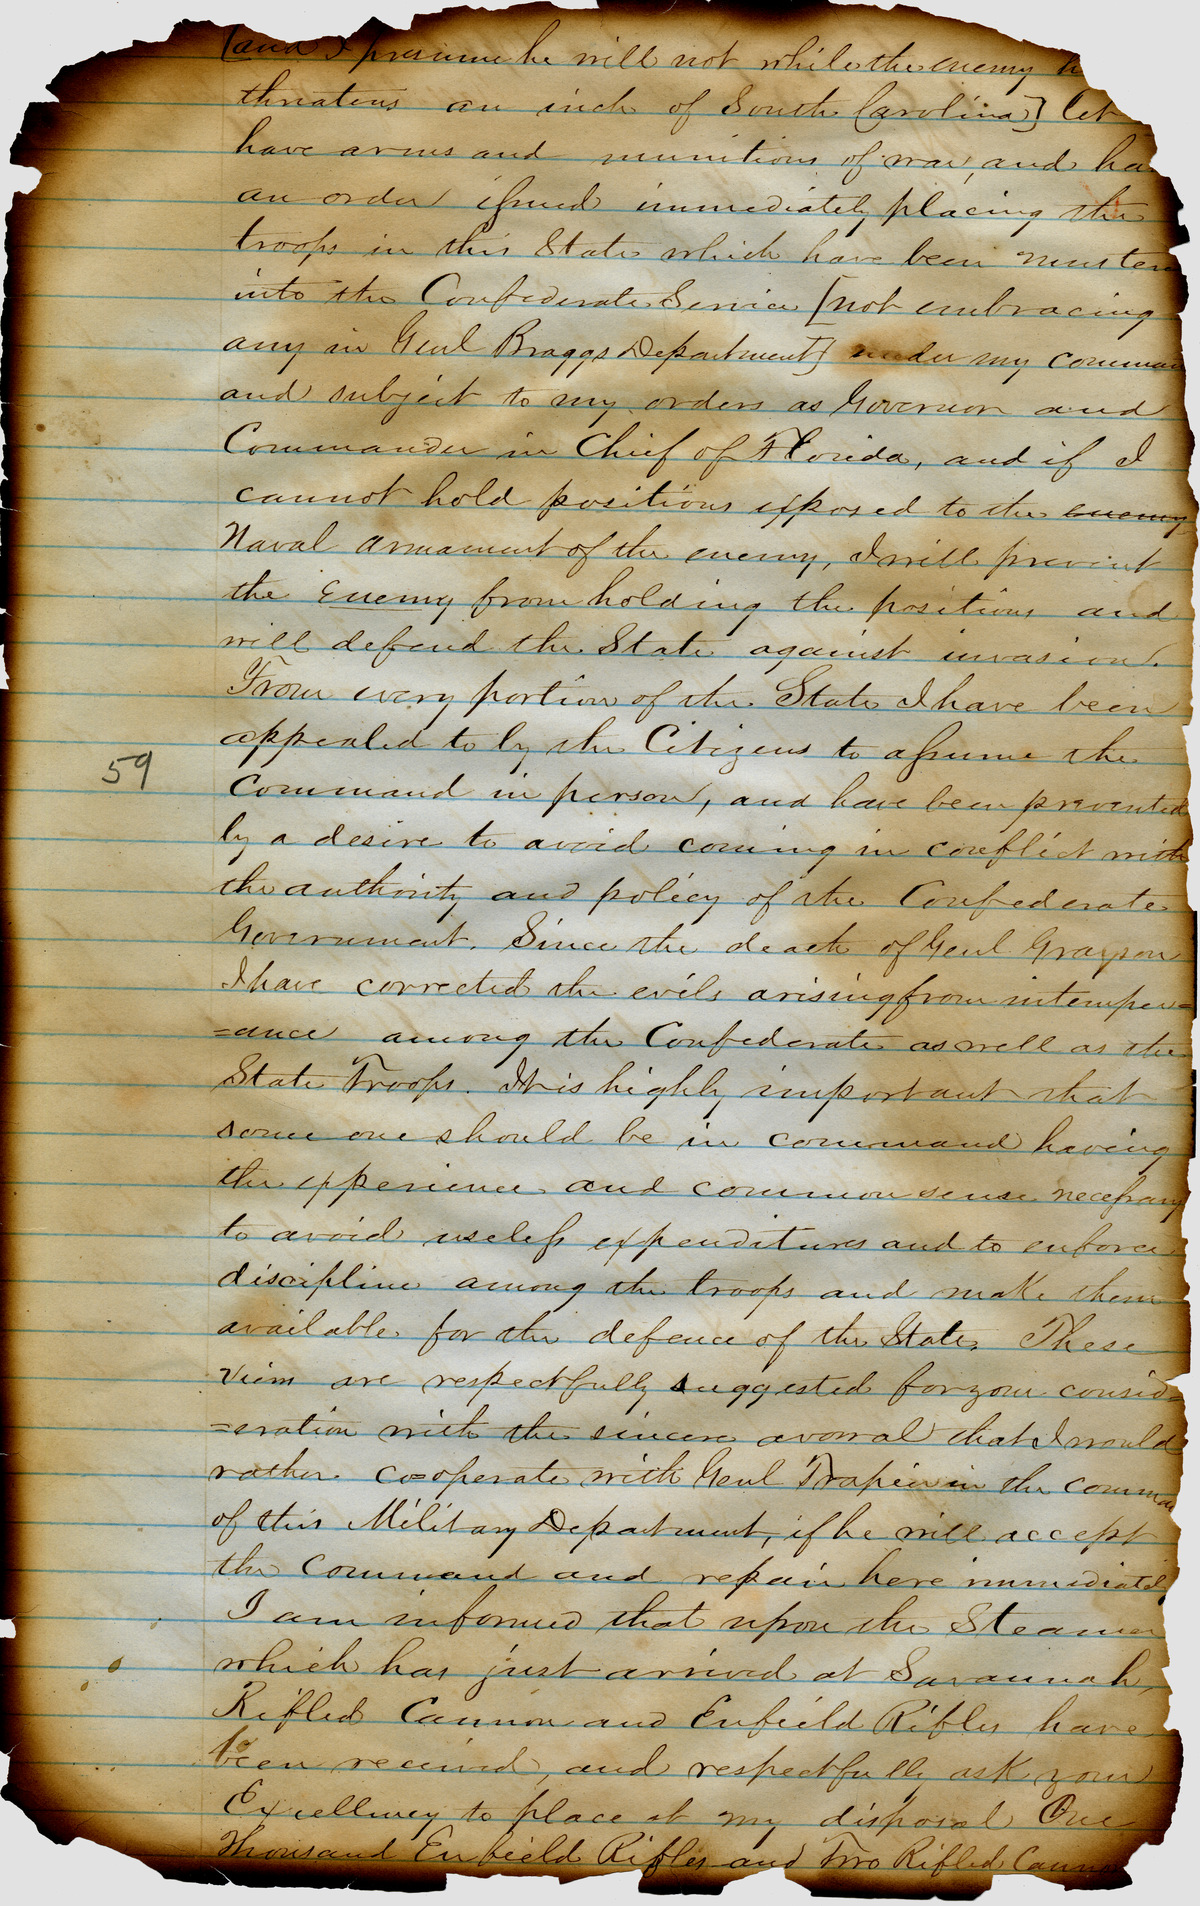 [and I presume he will not while the enemy
threatens an inch of South Carolina] let
have arms and munitions of war, and ha
an order issued immediately placing the
troops in this State which have been muster
into the Confederate Service [not embracing
any in Genl Braggs Department] under my comman
and subject to my orders as Governor and
Commander in Chief of Florida, and if I
cannot hold positions exposed to the enemy
Naval armament of the enemy, I will prevent
the Enemy from holding the positions and
will defend the State against invasion.
From every portion of the State I have been
appealed to by the Citizens to assume the
59
Command in person, and have been prevented
by a desire to avoid coming in conflict with
the authority and policy of the Confederate
Government. Since the death of Genl Grayson
I have corrected the evils arising from intemper=
=ance among the Confederate as well as the
State Troops. It is highly important that
some one should be in command having
the experience and common sense necessary
to avoid useless expenditures and to enforce
discipline among the troops and make them
available for the defence of the State. These
views are respectfully suggested for your consid=
=eration with the sincere avowal that I would
rather co=operate with Genl Trapier in the comma
of this Military Department, if he will accept
the command and repair here immediately
I am informed that upon the Steamer
which has just arrived at Savannah,
Rifled Cannon and Enfield Rifles have
been received, and respectfully ask your
Excellency to place at my disposal One
Thousand Enfield Rifles and Two Rifled Canno